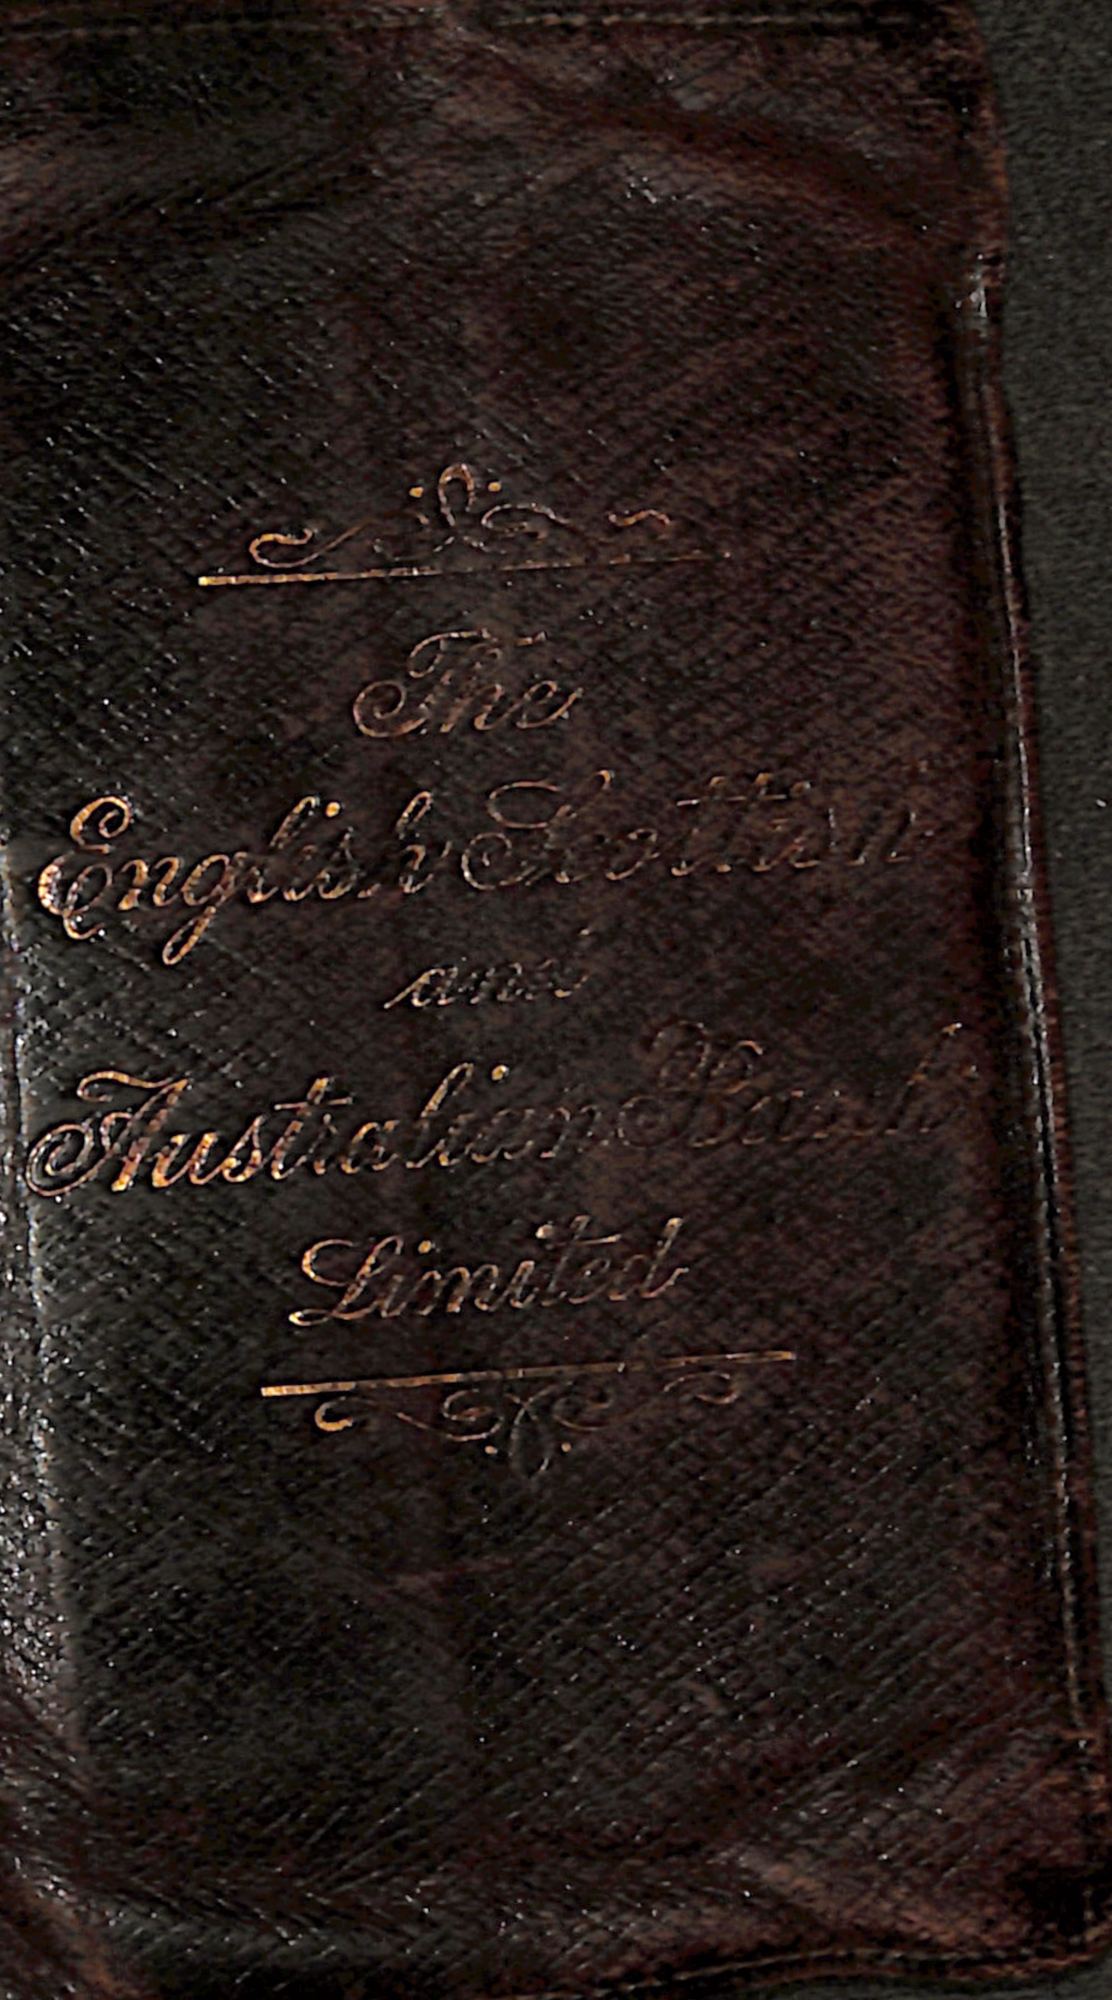 The
English Scottish
and
Australian Bank
Limited